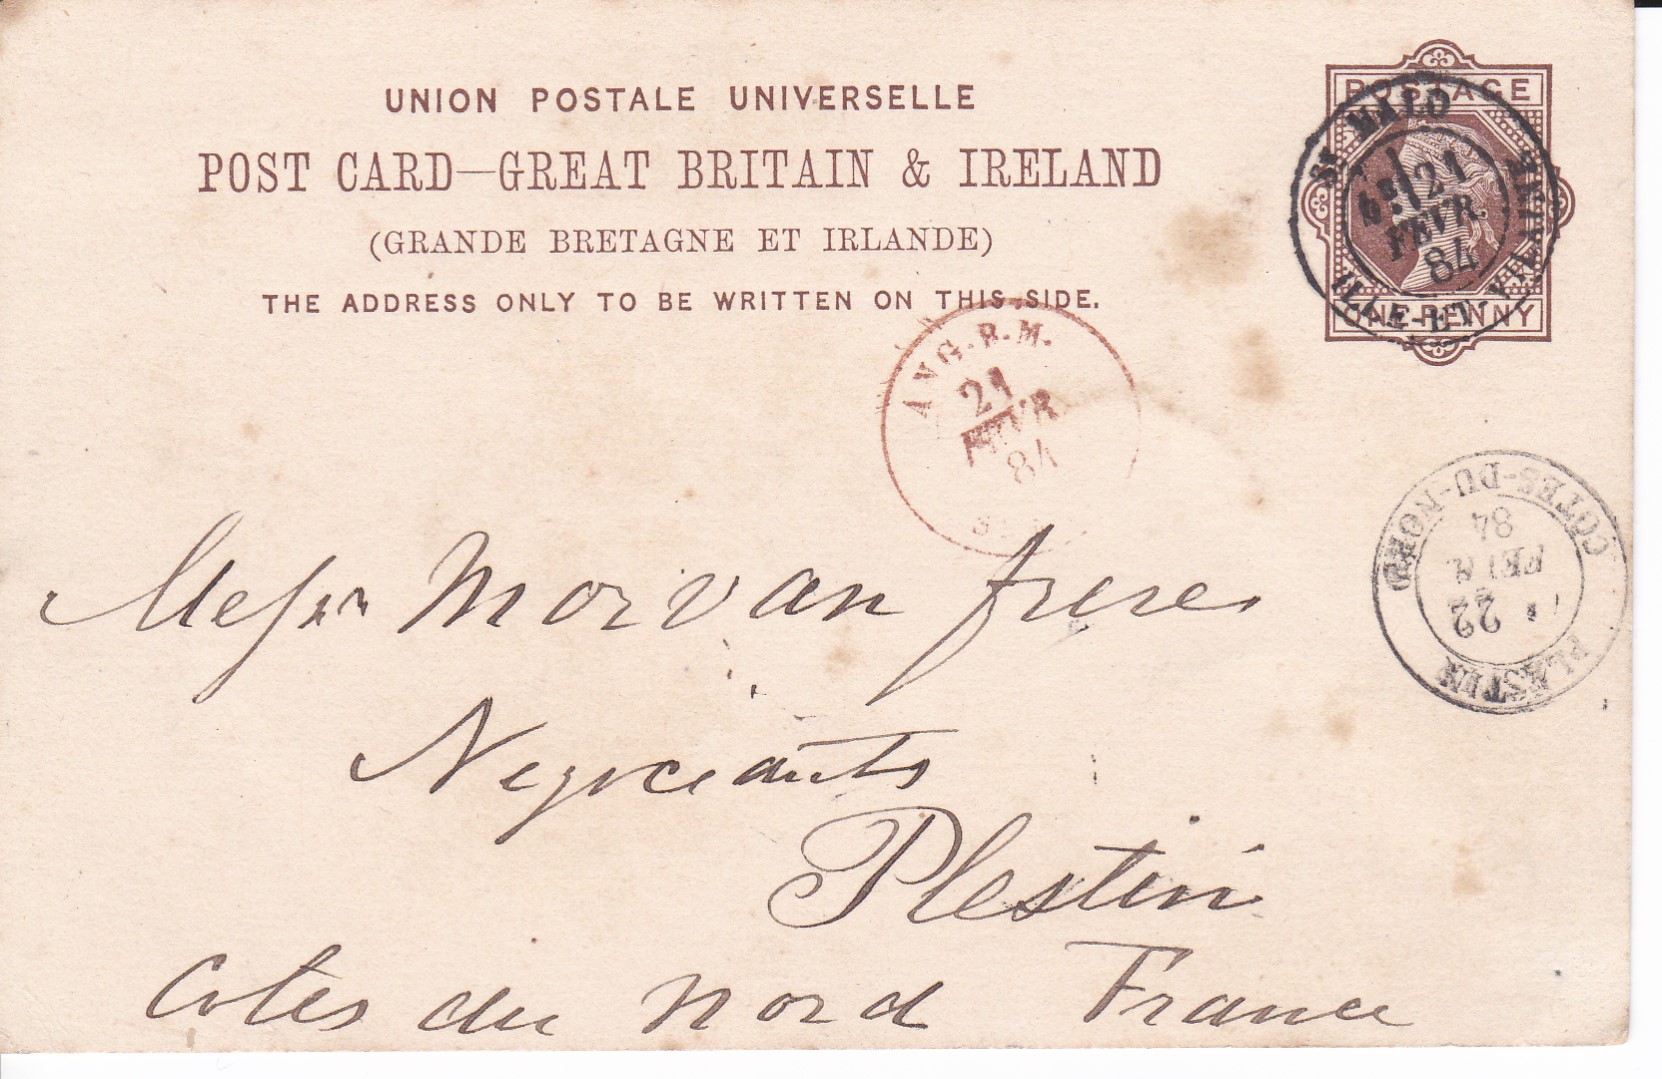 UNION POSTALE UNIVERSELLE
POST CARD—GREAT BRITAIN & IRELAND
(GRANDE BRETAGNE ET IRLANDE)
THE ADDRESS ONLY TO BE WRITTEN ON THIS SIDE.
POSTAGE
ONE PENNY
ST MALO
21
FEVR.
84
ILLE-ET-VILAINE
ANG.B.M.
21
FEVR
84
COTES-DU-NORD
84
FEVR.
22
PLESTIN
Messrs Morvan freres
Negociants
Plestin
Cotes du Nord France